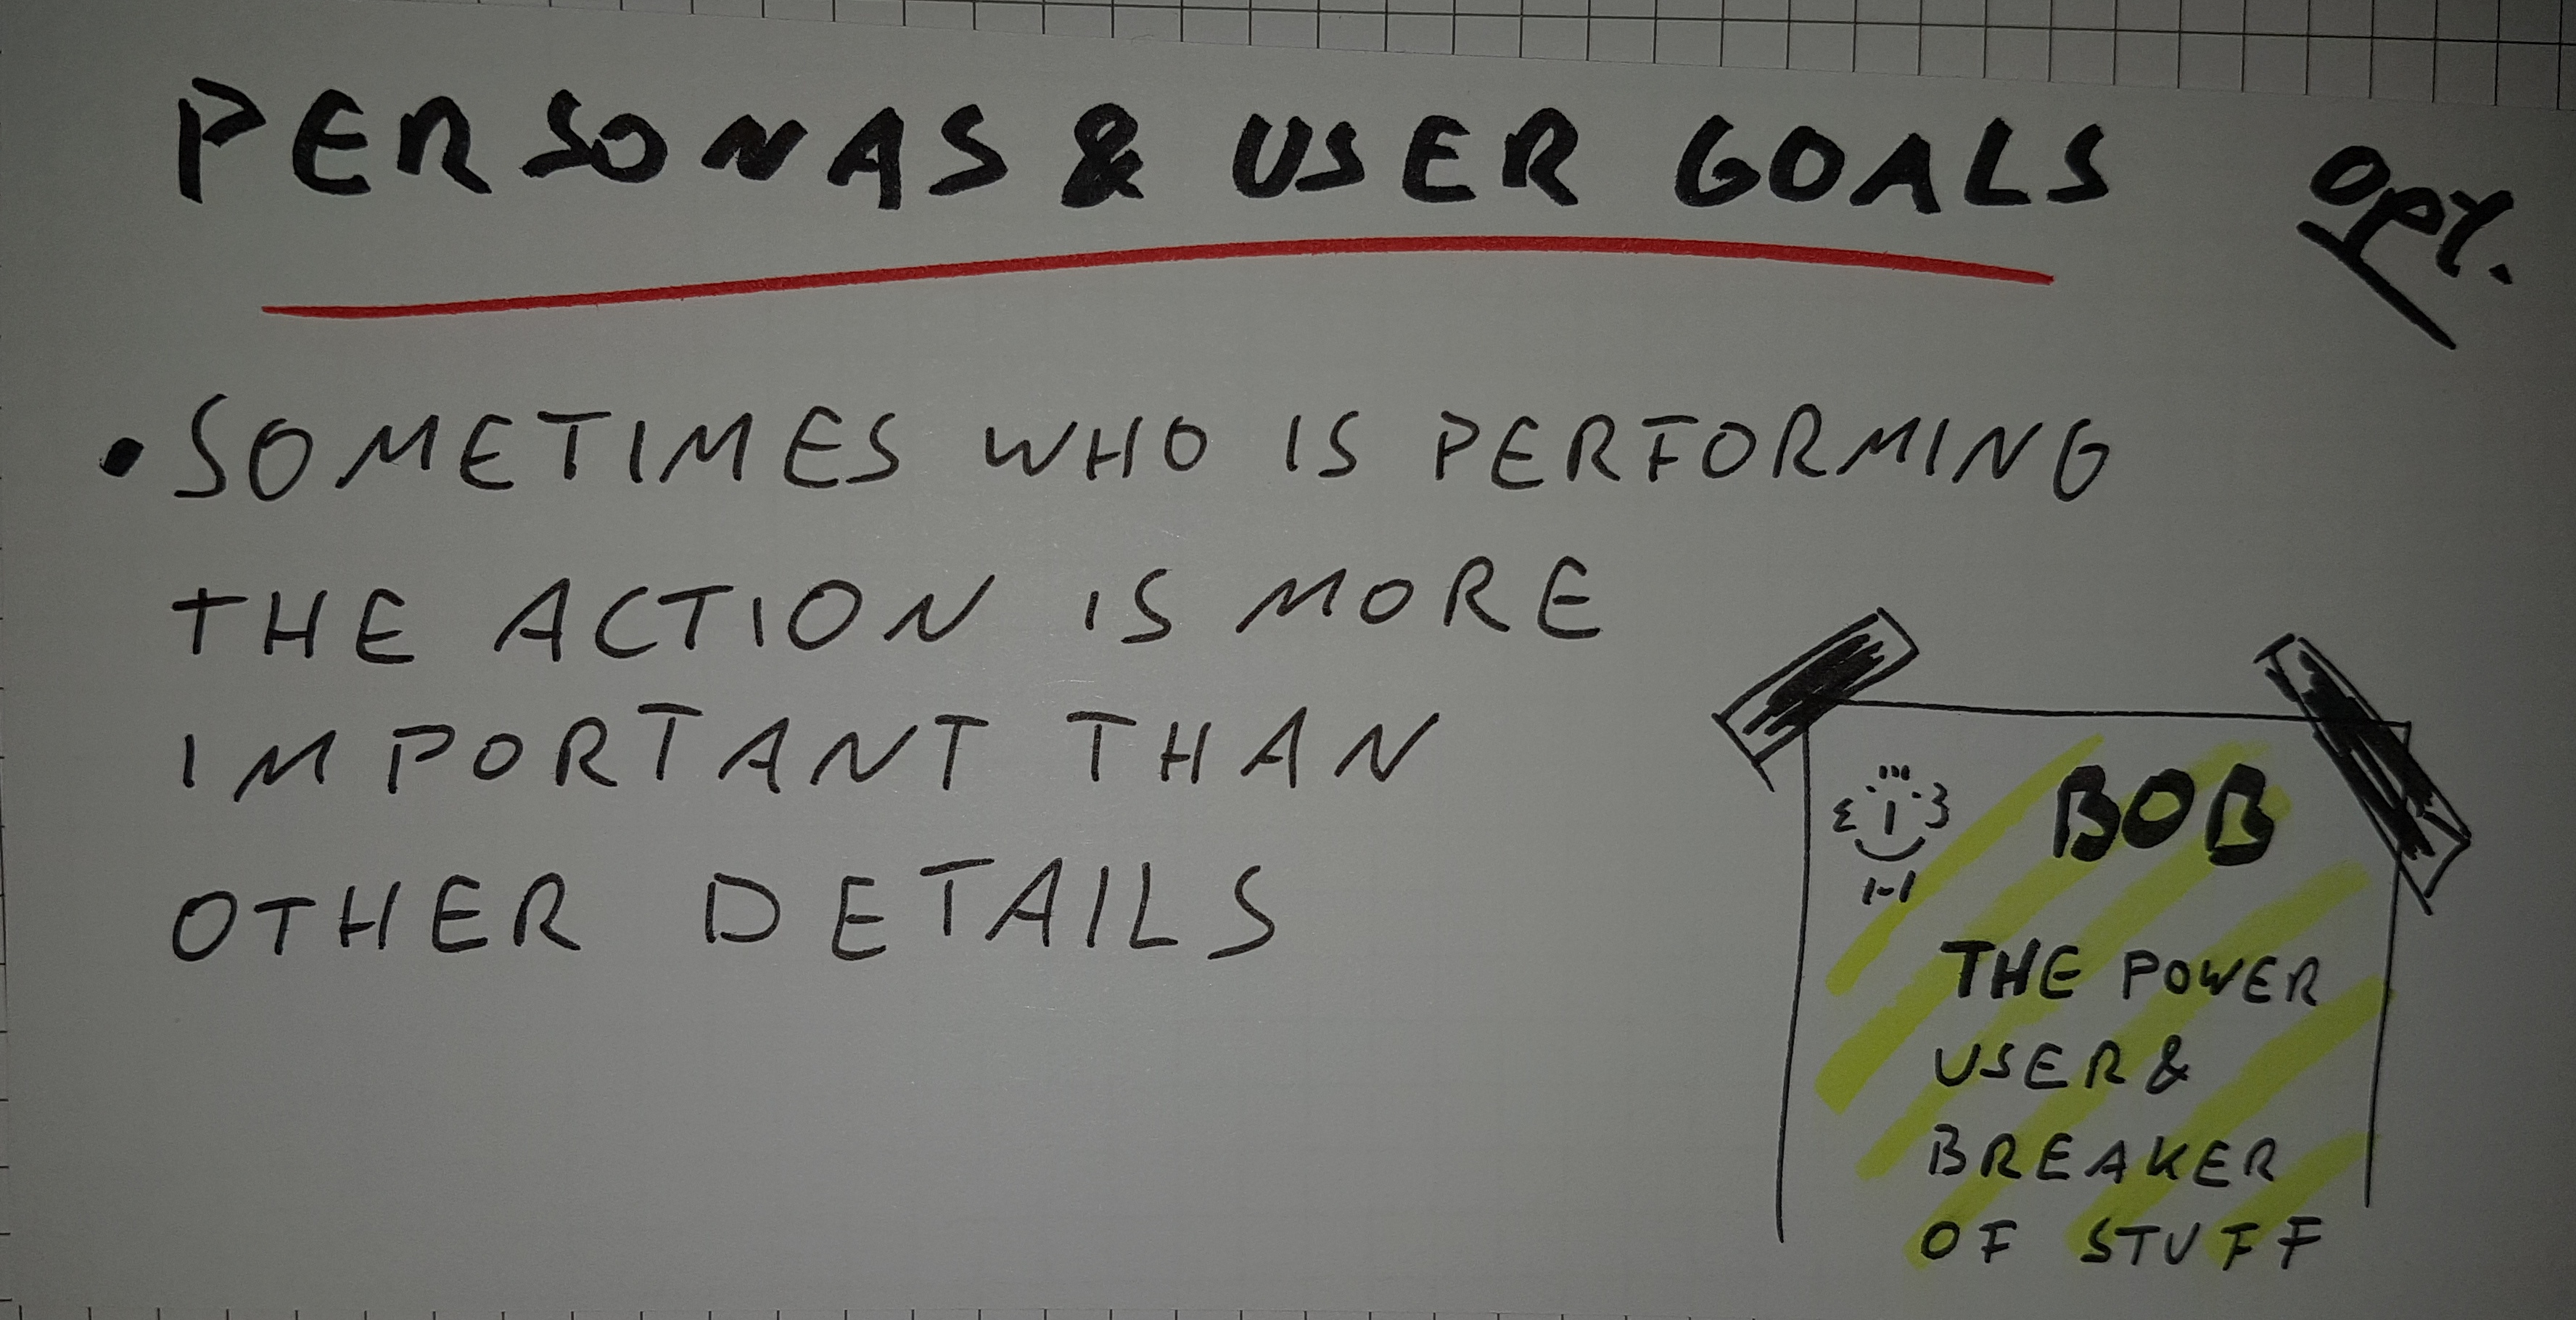 PERSONAS & USER GOALS
Opt.
• SOMETIMES WHO IS PERFORMING
THE ACTION IS MORE
IMPORTANT THAN
OTHER DETAILS
BOB
THE POWER
USER &
BREAKER
OF STUFF